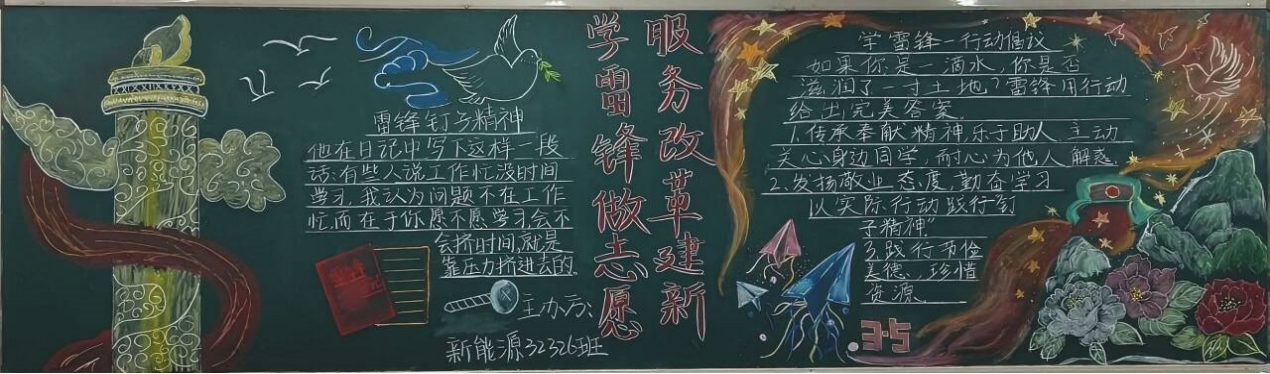 雷锋钉子精神
他在日记中写下这样一段
话:有些人说工作忙没时间
学习,我认为问题不在工作
忙,而在于你愿不愿学习,会不
会挤时间,就是
靠压力挤进去的
主办方:
新能源32326班
学雷锋做志愿
服务改革建新
学雷锋-行动倡议
如果你是一滴水,你是否
滋润了一寸土地?雷锋用行动
给出完美答案。
1.传承奉献精神乐于助人主动
关心身边同学,耐心为他人解惑.
2.发扬敬业态度,勤奋学习
以实际行动践行"钉
子精神"
3.践行节俭
美德,珍惜
资源
3·5